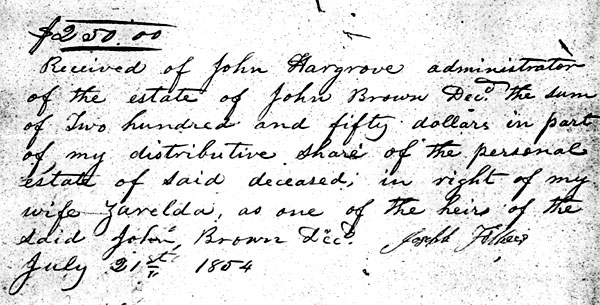 $250.00
Received of John Hargrove administrator
of the estate of John Brown Decd. the sum
of Two hundred and fifty dollars in part
of my distributive share of the personal
estate of said deceased; in right of my
wife Zarelda, as one of the heirs of the
said John Brown Decd. Joseph
July 21st 1854